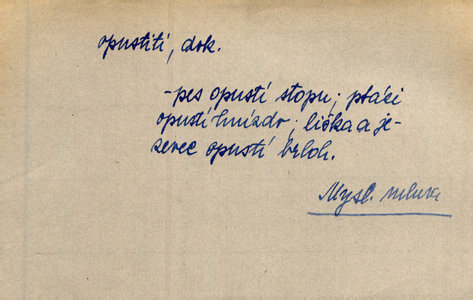 opustiti, dok.
-pes opustí stopu; ptáci
opustí hnízdo; liška a je-
zevec opustí brloh.
Mysl. mluva